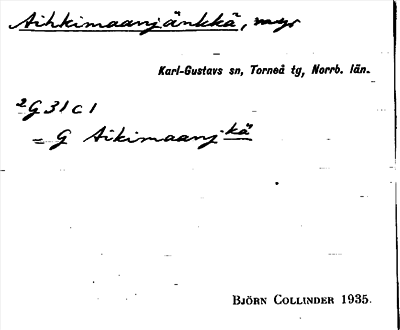 Aihkimaanjänkkä, myr
Karl-Gustavs sn, Torneå tg, Norrb. län.
²G 31 c 1
= G Aikimaanj·kä
BJÖRN COLLINDER 1935.